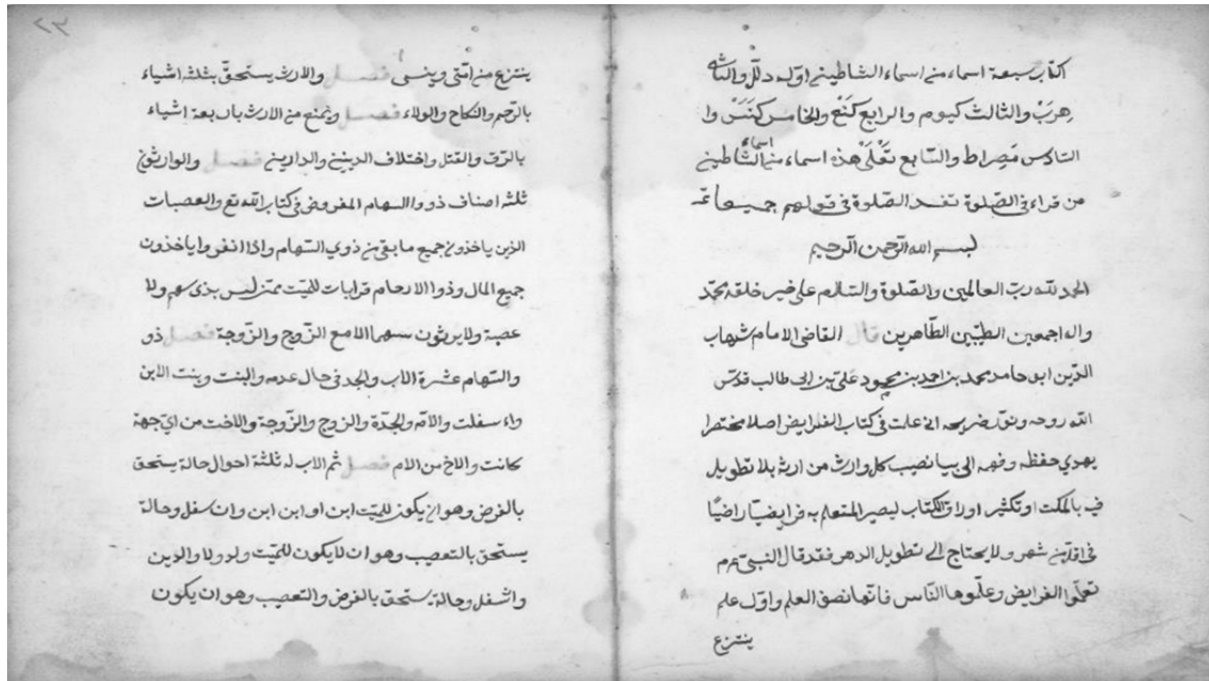 الكتاب سبعة اسماء من اسماء الشاطين اوله دلل والثاني
هرب والثالث كيوم والرابع كنع والخامس كنس وا
السادس مصراط والسابع تعلى هذه اسماء من اسماء الشاطين
من قراء فى الصلوة تفسد الصلوة فى قولهم جميعا تمه
بسم الله الرحمن الرحيم
الحمد لله رب العالمين والصلوة والسلام على خير خلقه محمد
واله اجمعين الطيبين الطاهرين قال القاضى الامام شهاب
الدين ابو حامد محمد بن احمد بن محمود على بن ابى طالب قدس
الله روحه ونور ضريحه انى علت فى كتاب الفرايض اصلا مختصرا
يهدي حفظه وفهمه الى بيا نصيب كل وارث من ارثه بلا تطويل
فيه بالمكث او تكثير اوراق الكتاب ليصير المتعلم به فرايضيا راضيا
فى اقل من شهر ولا يحتاج الى تطويل الدهر فقد قال النبى عم
تعلموا الفرايض وعلموها الناس فانها نصف العلم واول علم
ينتزع
٢٢
ينتزع من امتى وينسى فصل والارث يستحق بثلثه اشياء
بالرحم والنكاح والولاء فصل ويمنع من الارث باربعة اشياء
بالرق والقتل واختلاف الدينين والدارين فصل والوارثون
ثلثه اصناف ذووا السهام المفروض فى كتاب الله تع والعصبات
الذين ياخذون جميع ما بقى من ذوي السهام واذا انفردوا ياخذون
جميع المال وذوا الارحام قرابات للميت ممن ليس بذى سهم ولا
عصبة ولا يرثون سهما الا مع الزوج والزوجة فصل ذو
والسهام عشرة الاب والجد فى حال عدمه والبنت وبنت الابن
واء سفلت والام والجدة والزوج والزوجة والاخت من اي جهة
كانت والاخ من الام فصل ثم الاب له ثلثة احوال حالة يستحق
بالفرض وهو ان يكون للميت ابن او ابن ابن وان سفل وحالة
يستحق بالتعصيب وهو ان لا يكون للميت ولد ولا ولد ابن
وا سفل وحالة يستحق بالفرض والتعصيب وهو ان يكون